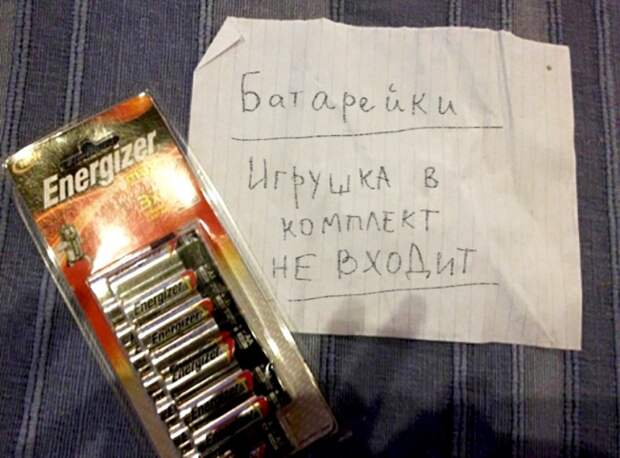 Energizer
Батарейки
Игрушка в
комплект
не входит
Energizer
Energizer
Energizer